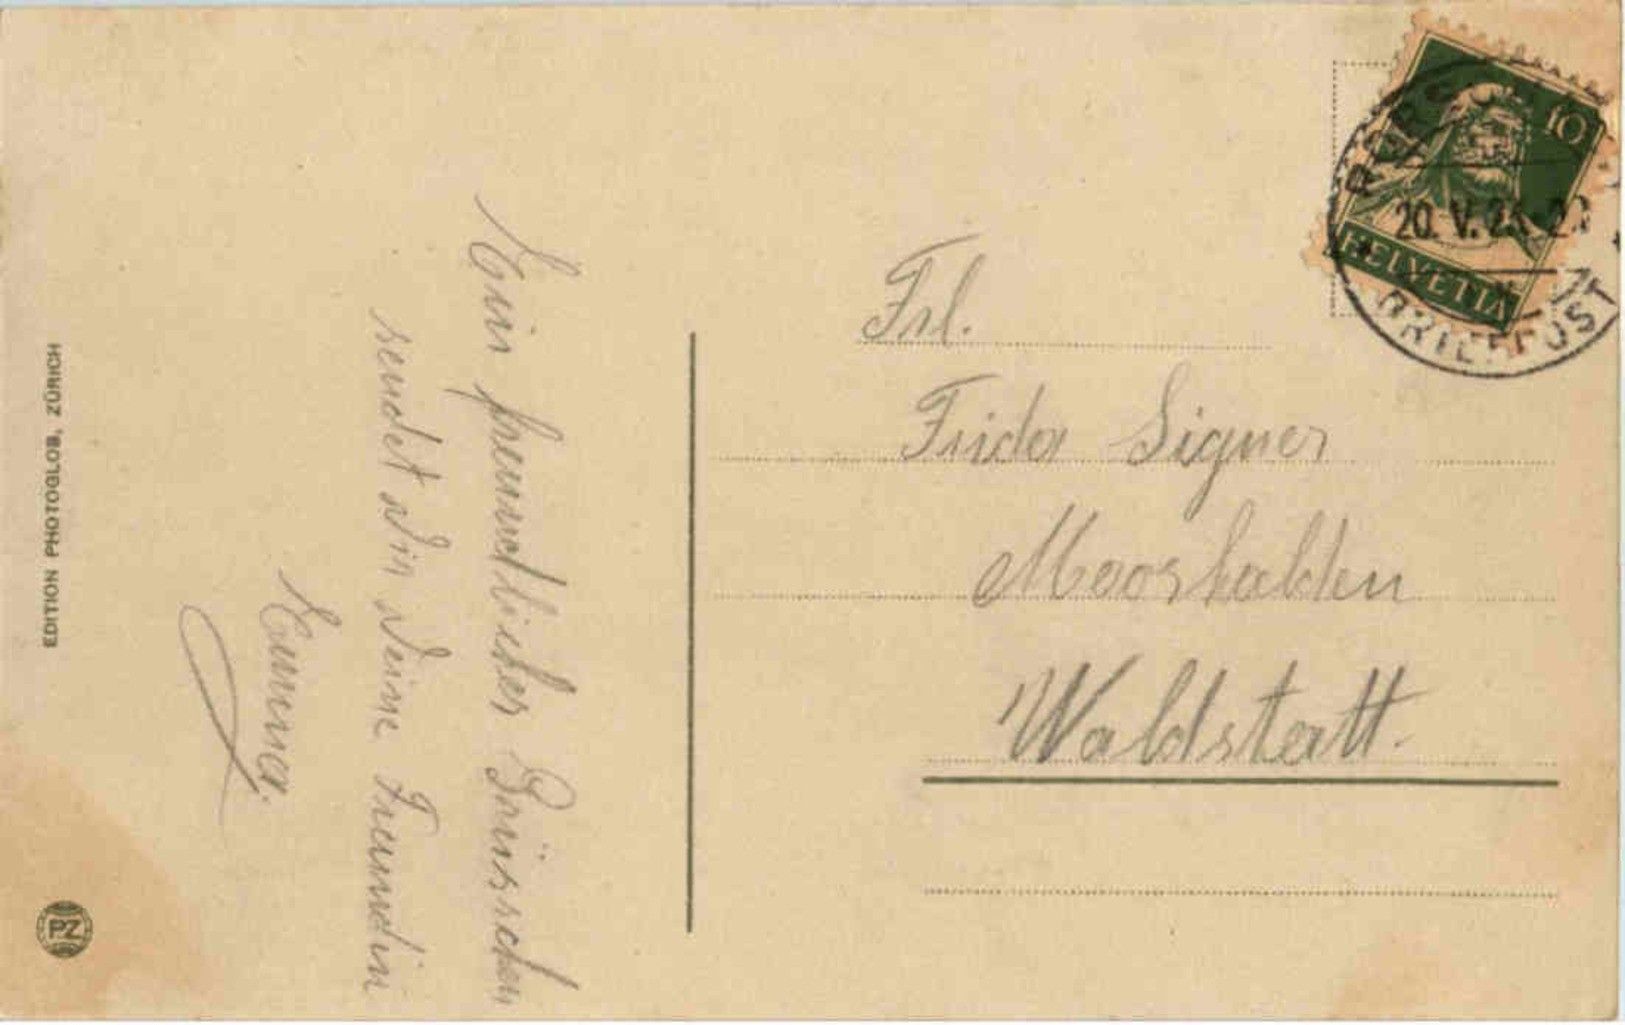 Ein freundliches Grüsschen
sendet dir deine Freundin
Emma.
EDITION PHOTOGLOB, ZÜRICH
PZ
Frl.
Frida Signer
Mooshalden
Waldstatt.
10
HELVETIA
20. V. 
BRIEFPOST